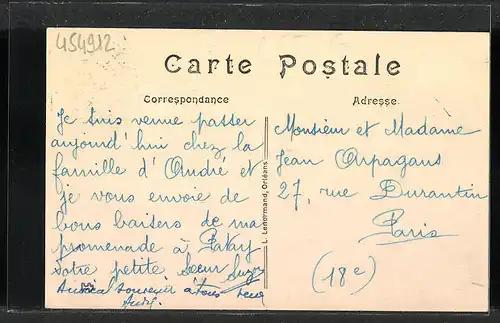 454912
Carte Postale
Correspondance
Adresse
Je suis venue passer
aujourd'hui chez la
famille d'André et
je vous envoie de
bons baisers de ma
promenade à Patay
votre petite soeur Suzy
Amical souvenir à tous
L. Lenormand, Orléans
Monsieur et Madame
Jean Arpagaus
27, rue Durantin
Paris
(18e)